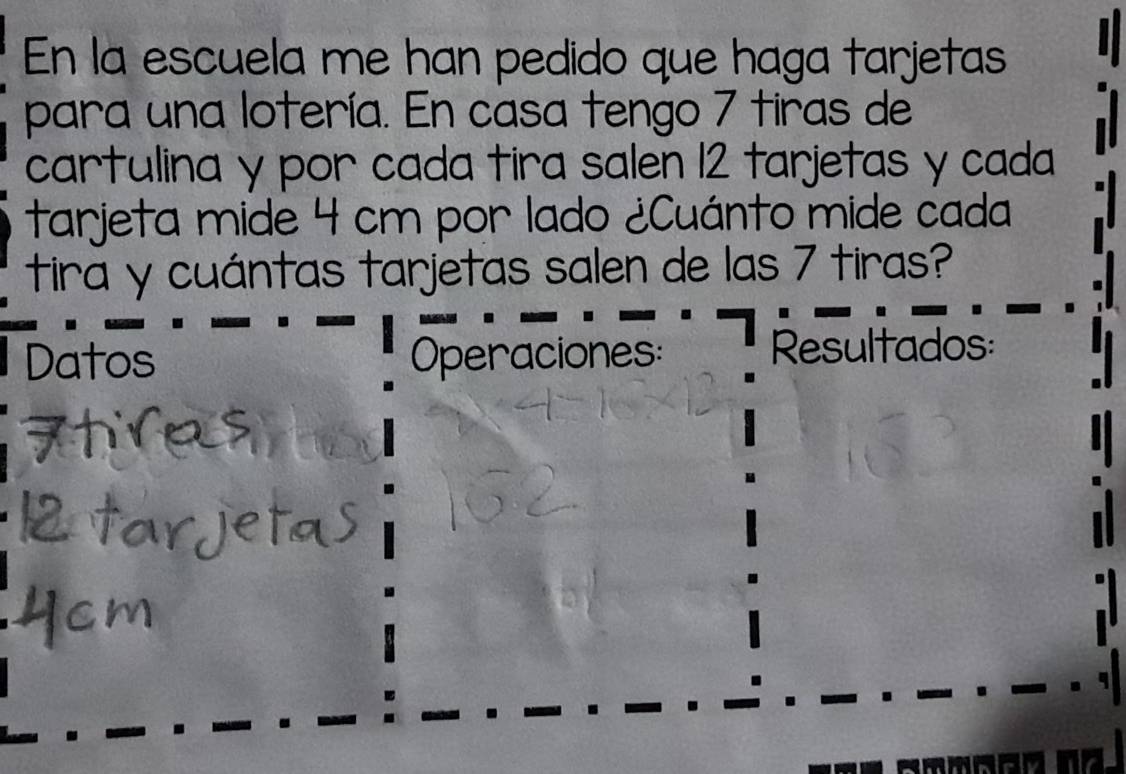 En la escuela me han pedido que haga tarjetas
para una lotería. En casa tengo 7 tiras de
cartulina y por cada tira salen 12 tarjetas y cada
tarjeta mide 4 cm por lado ¿Cuánto mide cada
tira y cuántas tarjetas salen de las 7 tiras?
Datos
Operaciones:
Resultados:
7 tiras
12 tarjetas
4cm